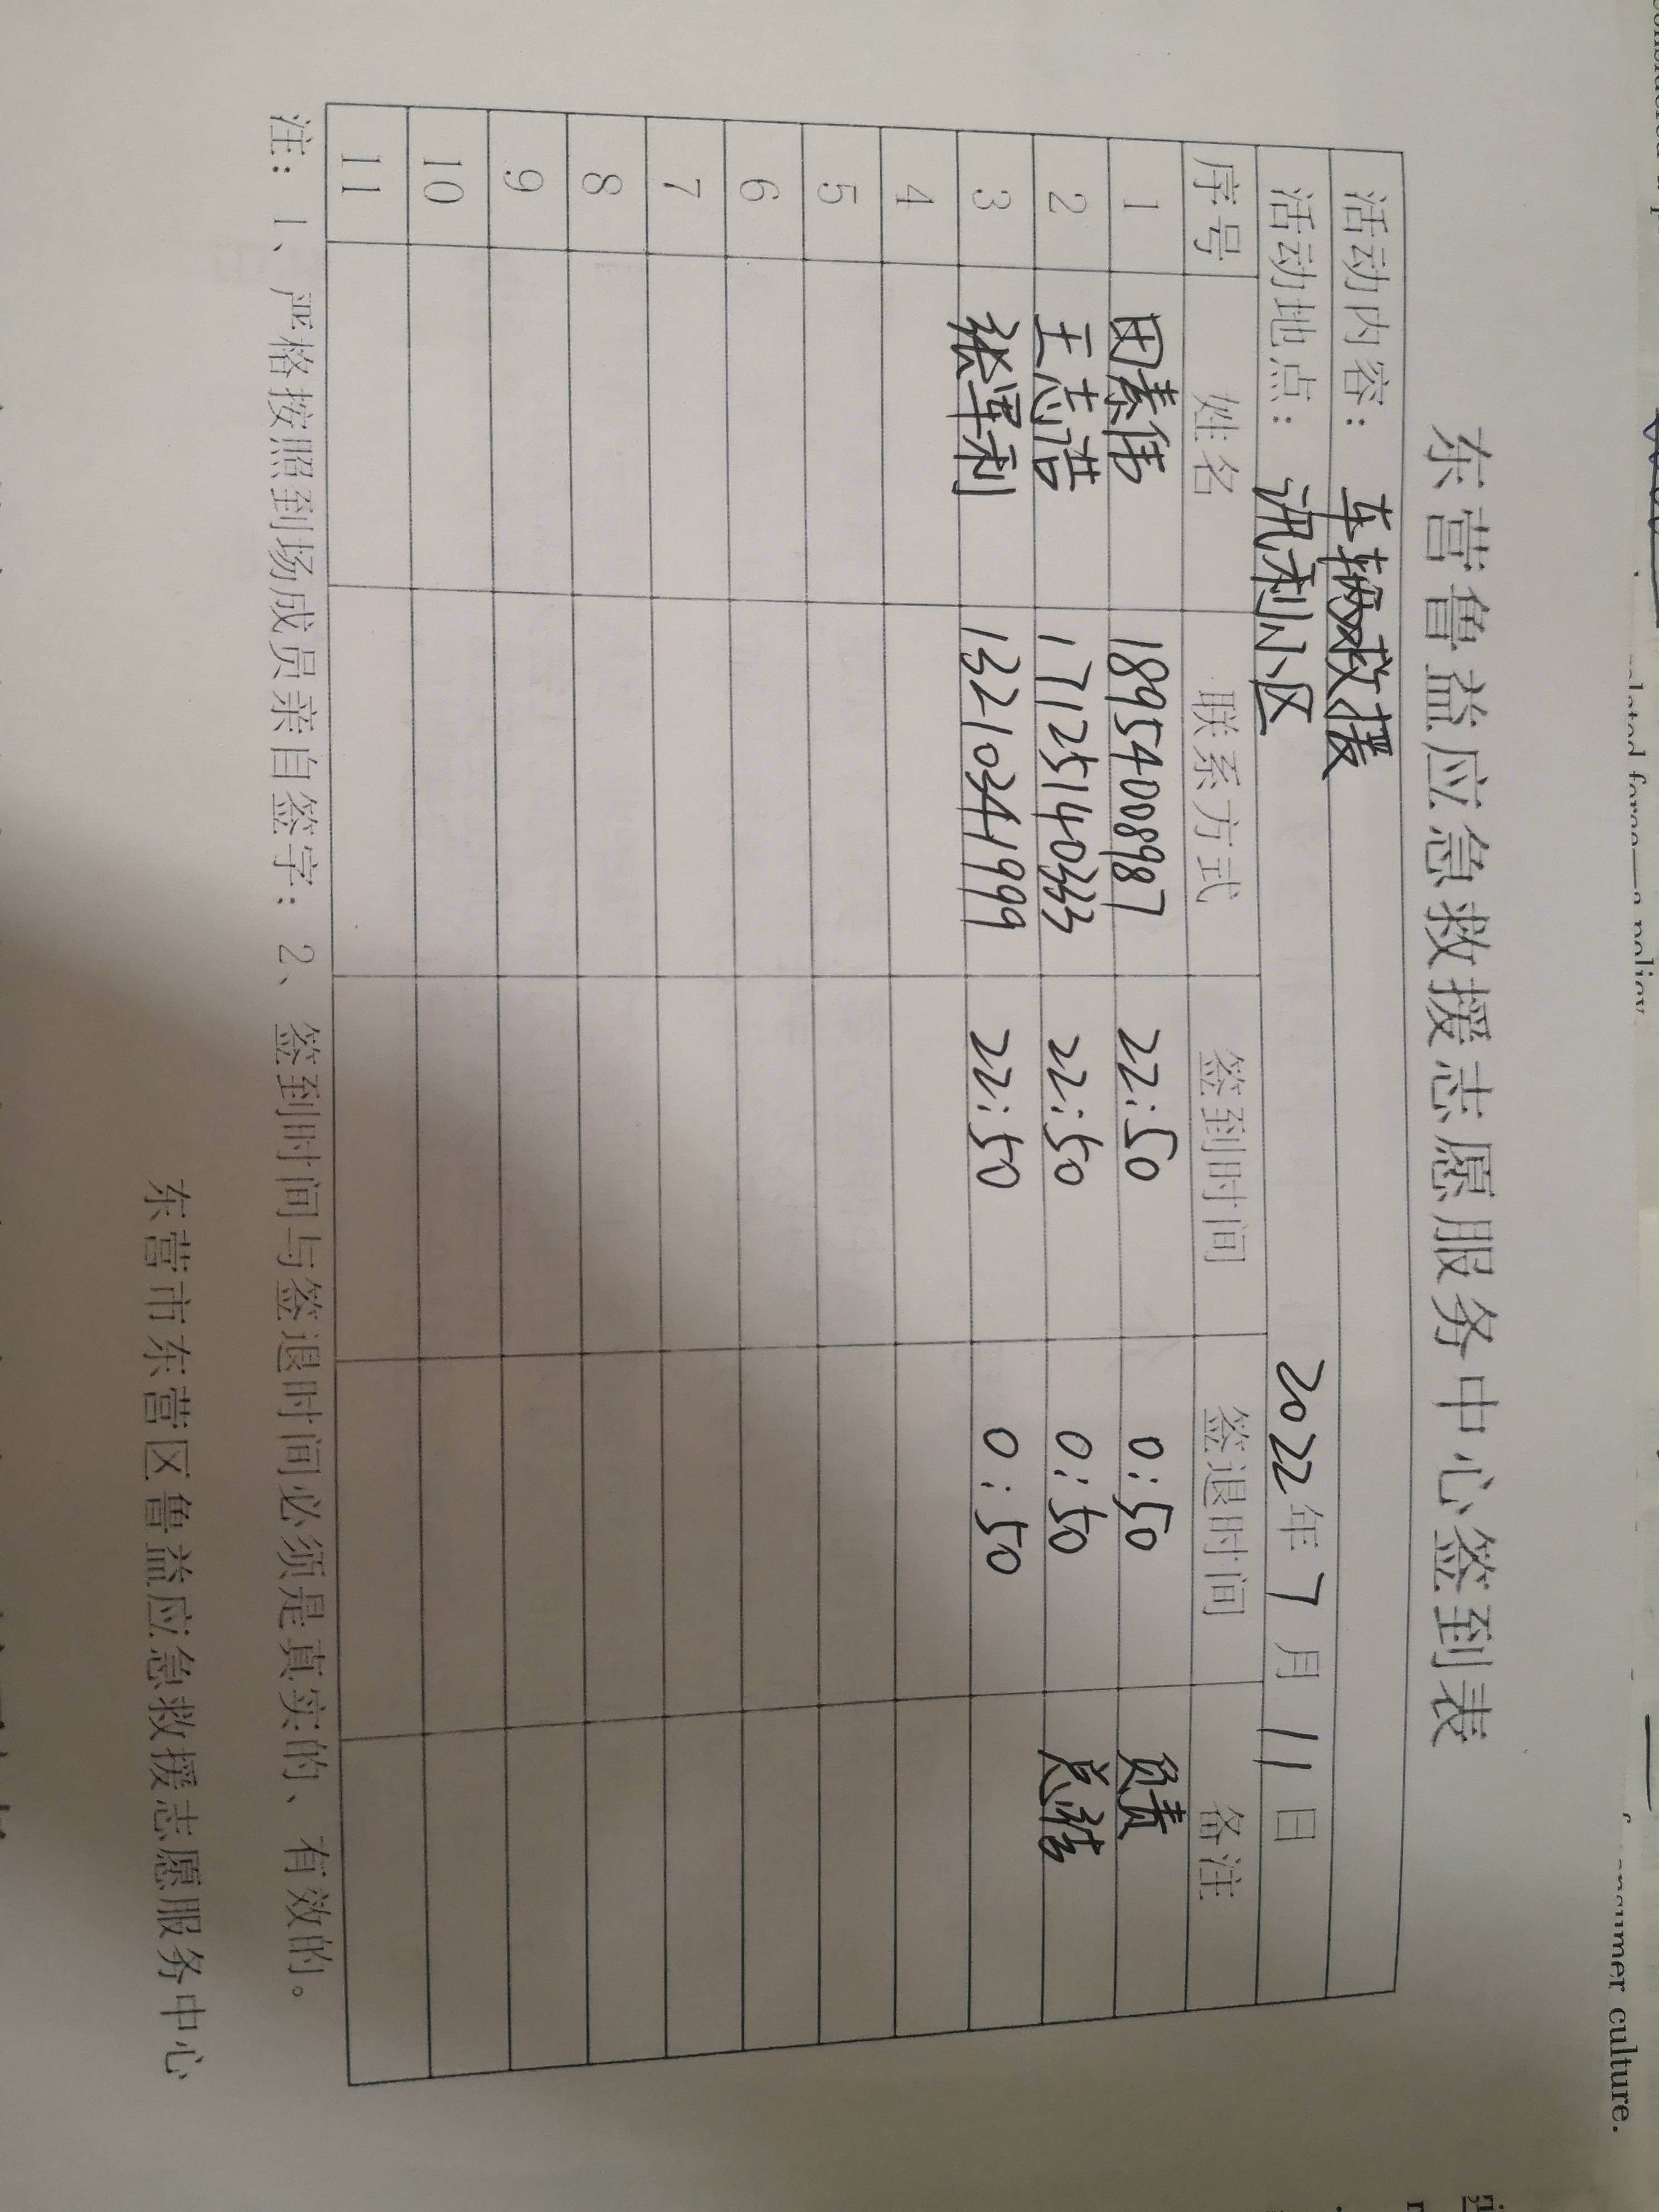 东营鲁益应急救援志愿服务中心签到表
活动内容： 车辆救援
活动地点： 讯利小区 2022年7月11日
序号 姓名 联系方式 签到时间 签退时间 备注
1 田素伟 18954008987 22:50 0:50 负责
2 王志浩 17125140333 22:50 0:50 总结
3 张军利 13210341999 22:50 0:50
4
5
6
7
8
9
10
11
注：1、严格按照到场成员亲自签字；2、签到时间与签退时间必须是真实的、有效的。
东营市东营区鲁益应急救援志愿服务中心
consumer culture.